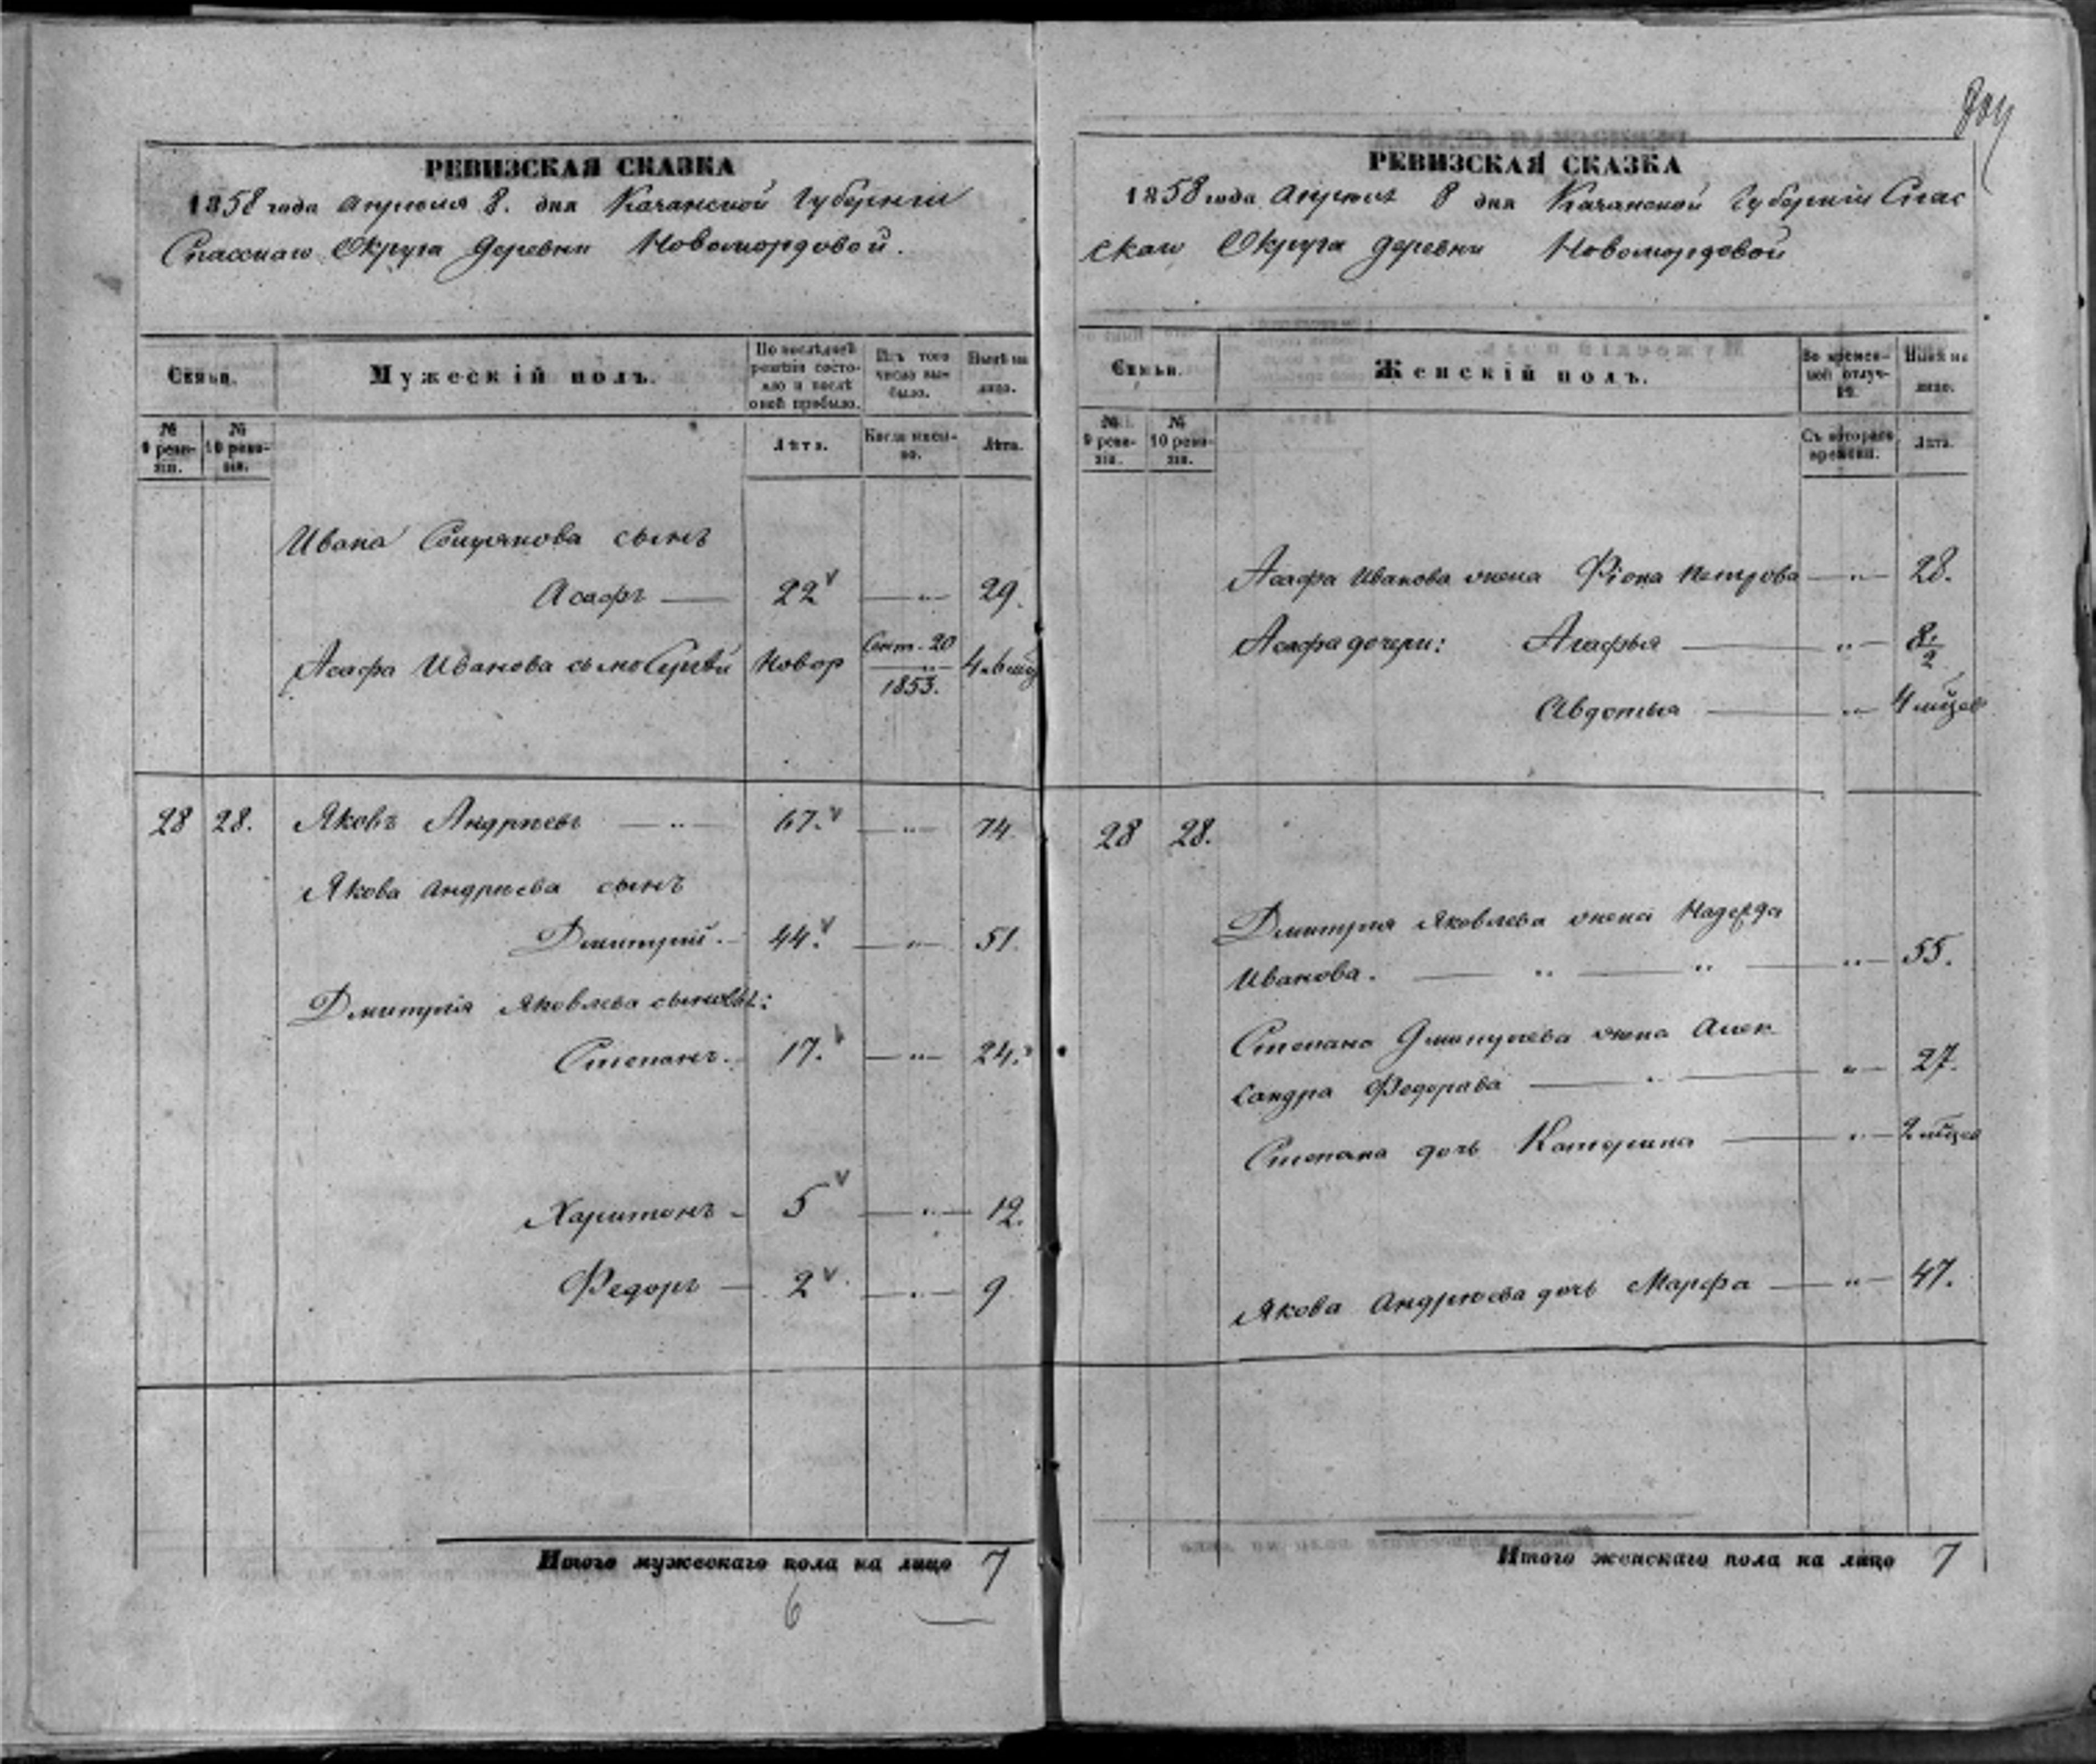 РЕВИЗСКАЯ СКАЗКА
1858 года Апреля 8. дня Казанской Губернии
Спасскаго Округа Деревни Новомордовой.
Семьи.
Мужескій полъ.
По послѣдней ревизіи состояло и послѣ оной прибыло.
Изъ того числа выбыло.
Нынѣ на лицо.
№ 9 ревизіи.
№ 10 ревизіи.
Лѣта.
Когда именно.
Лѣта.
Ивана сынъ
Асафъ — 22 — „ — 29.
Асафа Иванова сынъ Новор Сент. 20 1853. 4
28 28. Яковъ Андреевъ — „ — 67. — „ — 74.
Якова Андреева сынъ
Дмитрий. — 44. — „ — 51.
Дмитрія Яковлева сыновья:
Степанъ. 17. — „ — 24.
Харитонъ — 5 — „ — 12.
Федоръ — 2 — „ — 9
Итого мужескаго пола на лицо 7
6
РЕВИЗСКАЯ СКАЗКА
1858 года Апреля 8 дня Казанской Губернии Спас
скаго Округа Деревни Новомордовой
Семьи.
Женскій полъ.
Во временной отлучкѣ.
Нынѣ на лицо.
№ 9 ревизіи.
№ 10 ревизіи.
Съ котораго времени.
Лѣта.
Асафа Иванова жена Фіона Петрова — „ — 28.
Асафа дочери: Агафья — „ — 8 1/2
Авдотья — „ — 4 мѣсяц
28 28.
Дмитрия Яковлева жена Надежда
Иванова. — „ — „ — „ — 55.
Степана Дмитриева жена Алек
сандра Федорова — „ — 27.
Степана дочь Катерина — „ — 2 мѣсяца
Якова Андреева дочь Марфа — „ — 47.
Итого женскаго пола на лицо 7